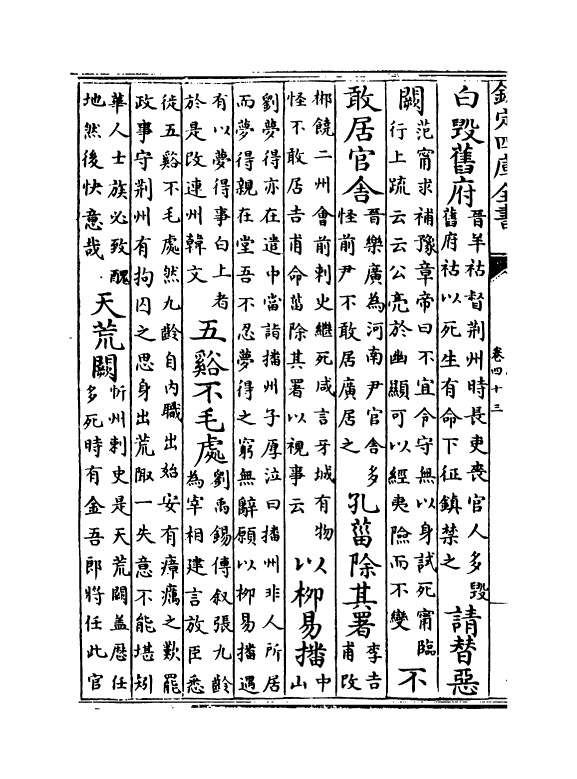 欽定四庫全書
卷四十三
白毀舊府晉羊祜督荆州時長吏喪官人多毀舊府祜以死生有命下征鎮禁之請替惡
闕范甯求補豫章帝曰不宜令守無以身試死甯臨行上疏云云公亮於幽顯可以經夷險而不變不
敢居官舍晉樂廣為河南尹官舍多怪前尹不敢居廣居之孔菑除其署李吉甫改
郴饒二州會前刺史繼死咸言牙城有物怪不敢居吉甫命菑除其署以視事云以栁易播中山
劉夢得亦在遣中當詣播州子厚泣曰播州非人所居而夢得親在堂吾不忍夢得之窮無辭願以栁易播遇
有以夢得事白上者於是改連州韓文五谿不毛處劉禹錫傳叙張九齡為宰相建言放臣悉
徙五谿不毛處然九齡自内職出始安有瘴癘之歎罷政事守荆州有拘囚之思身出荒陬一失意不能堪矧
華人士族必致醜地然後快意哉天荒闕忻州刺史是天荒闕盖歴任多死時有金吾郎將任此官